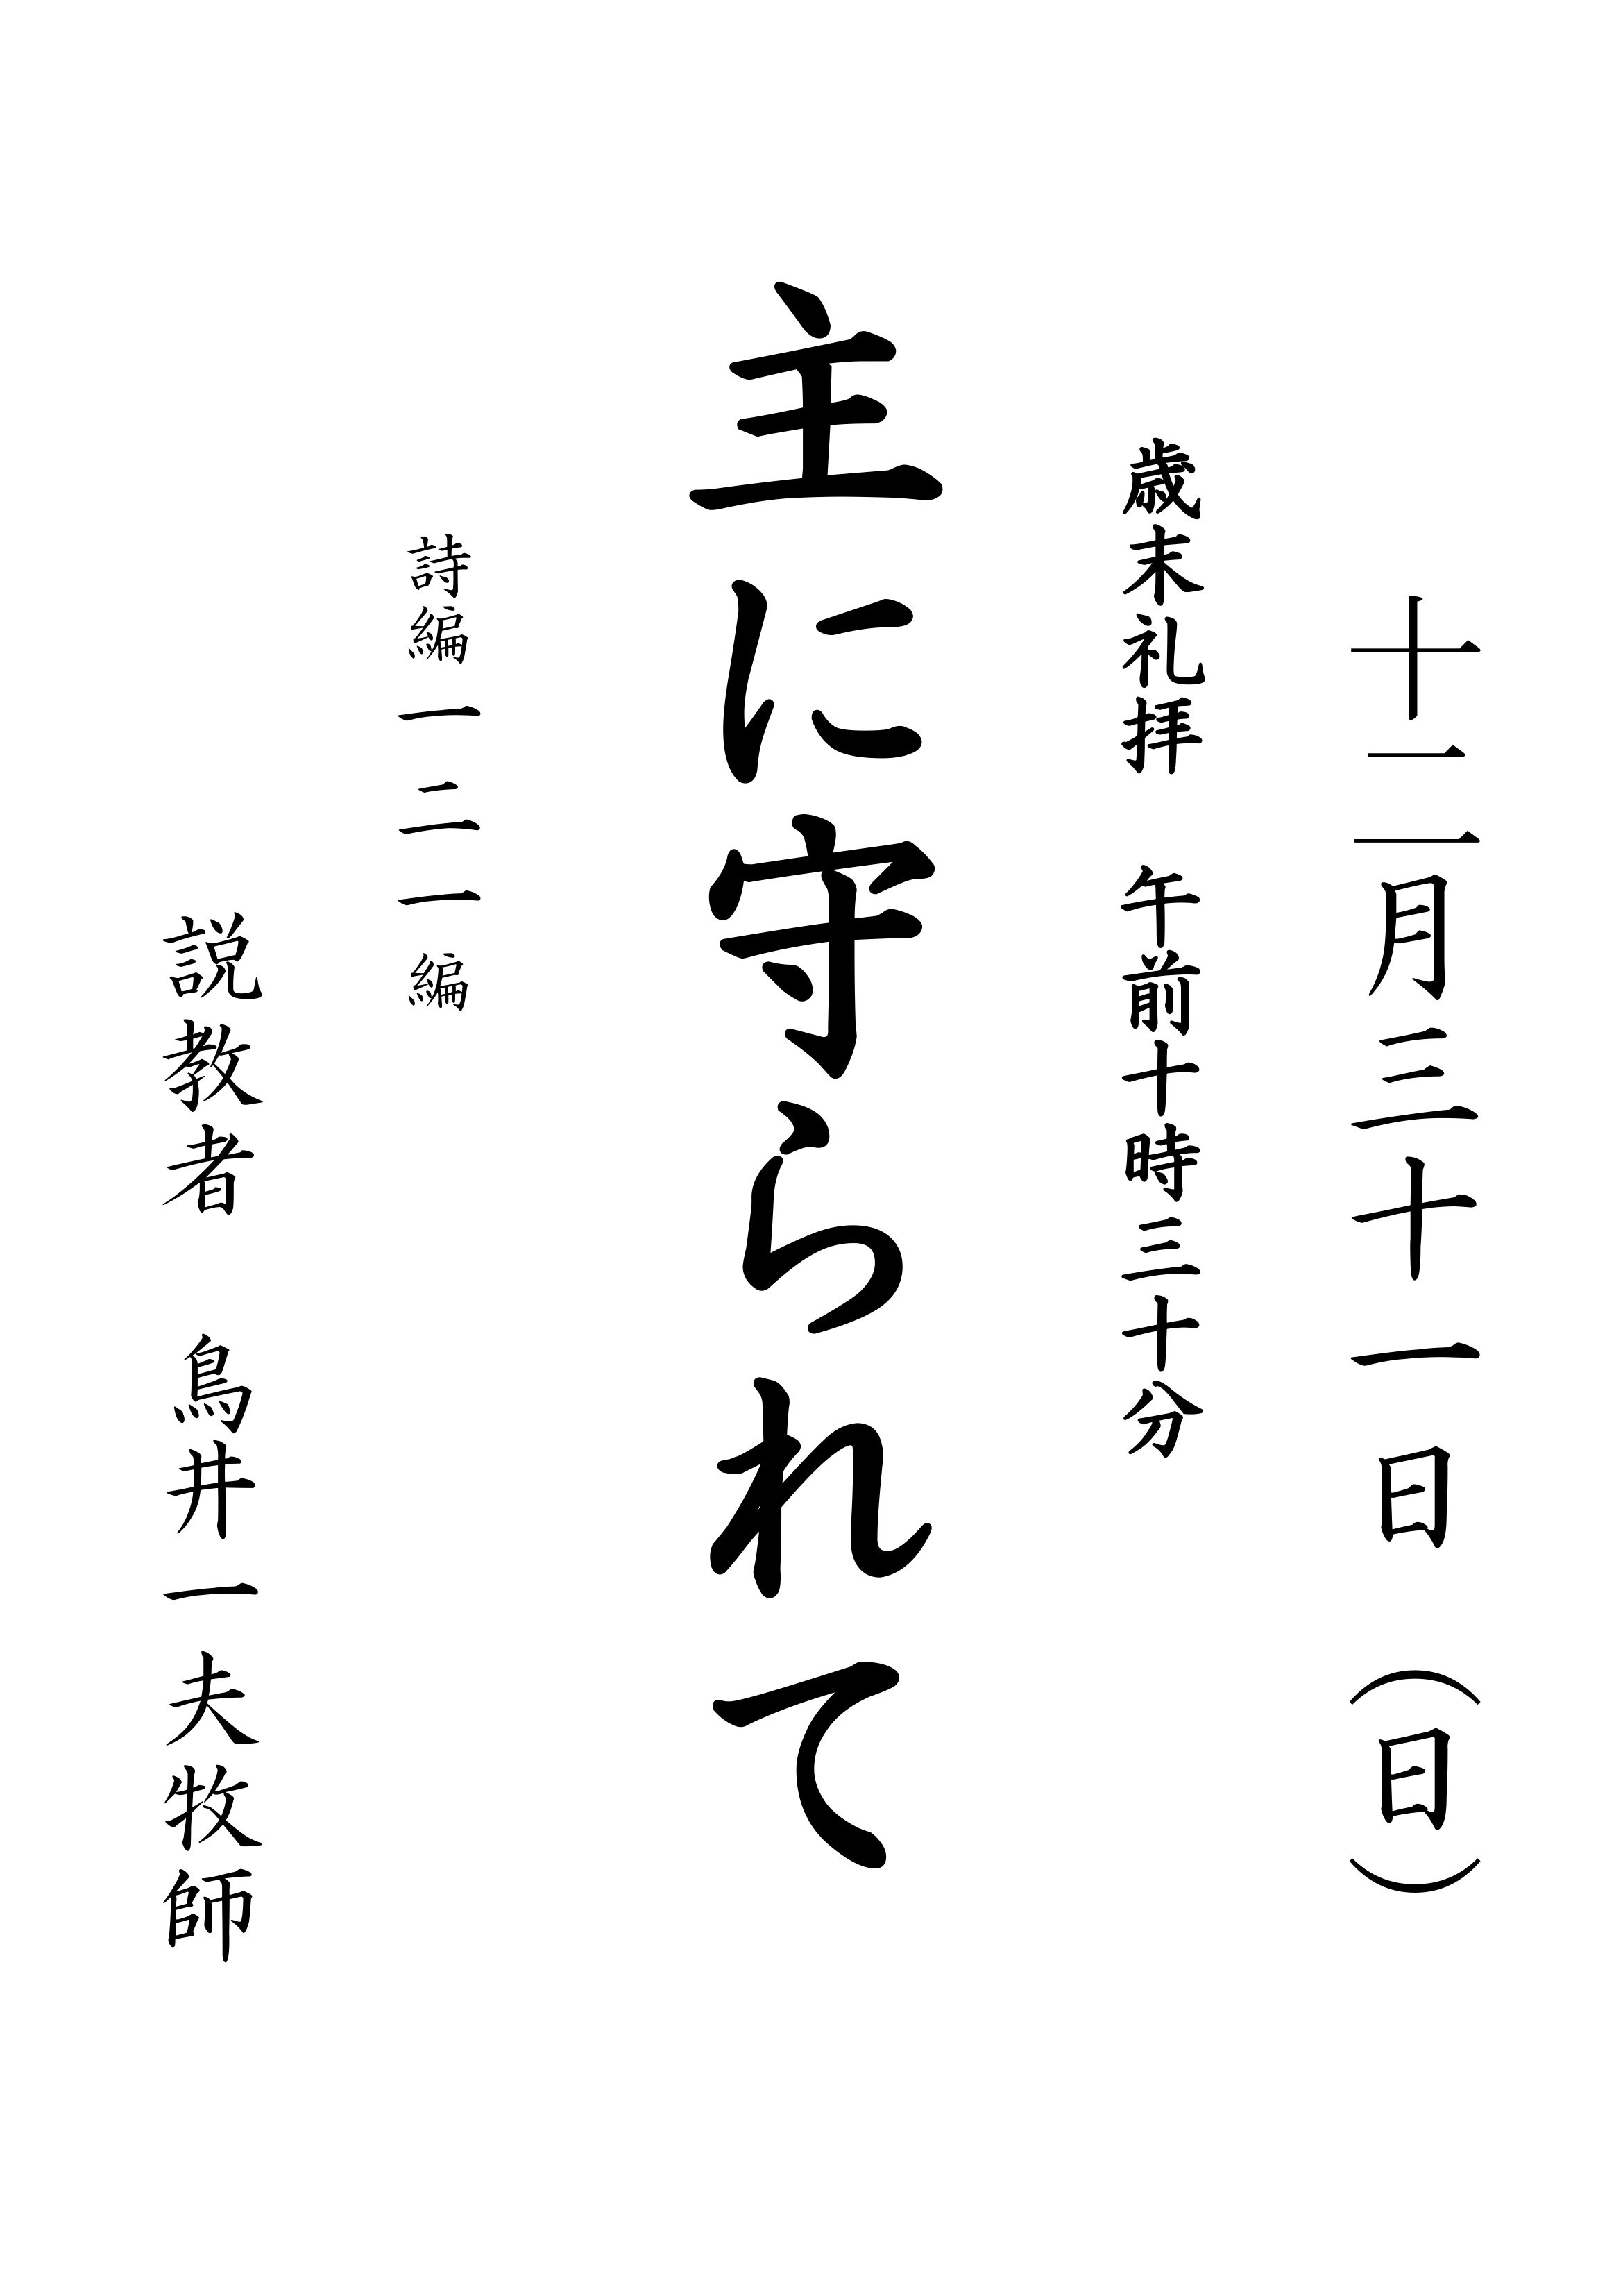 十二月三十一日　（日）
歳末礼拝　午前十時三十分
主に守られて
詩編一二一編
説教者　鳥井一夫牧師